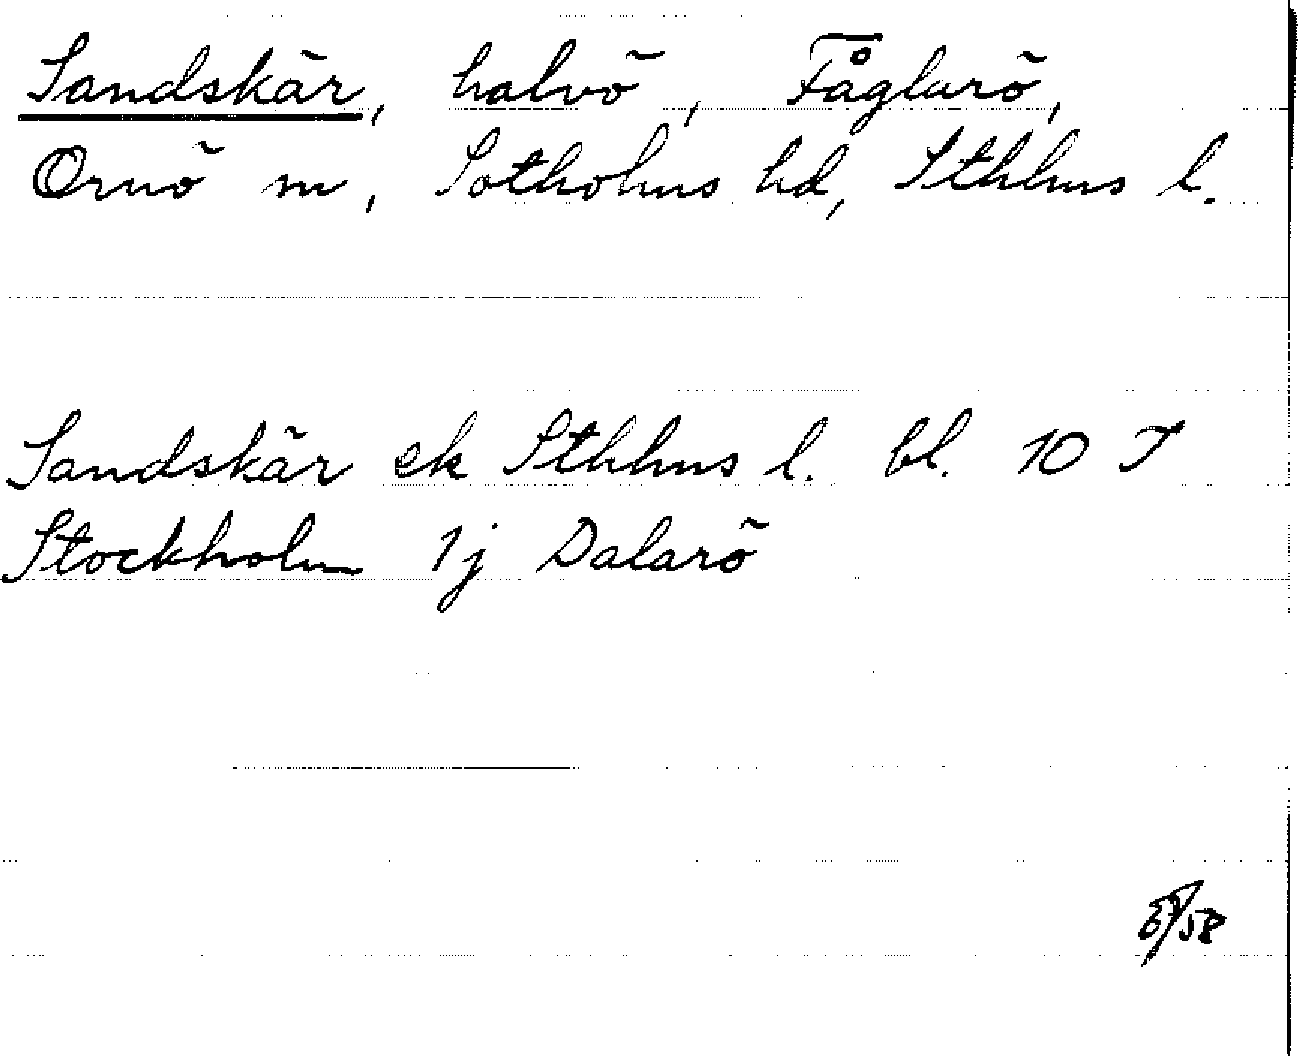 Sandskär, halvö, Fåglarö,
Ornö sn, Sotholms hd, Sthlms l.
Sandskär ek Sthlms l. bl. 10 J
Stockholm 1j Dalarö